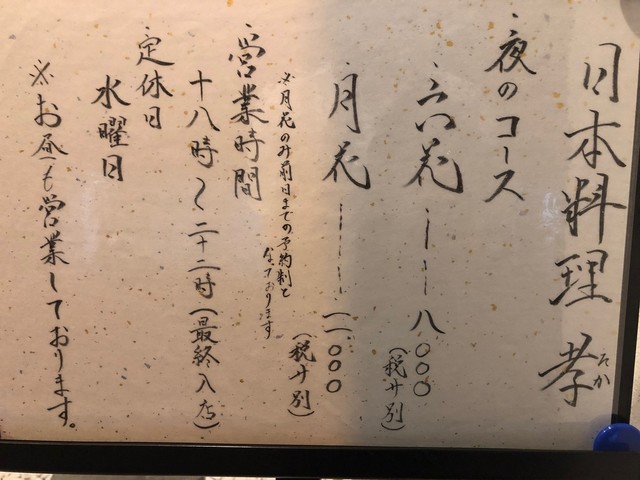 日本料理 孝
たか
・夜のコース
・六花 ---- 八〇〇〇
(税サ別)
・月花 ---- 一一.〇〇〇
(税サ別)
※月花のみ前日までの予約制と
なっております
・営業時間
十八時〜二十二時(最終入店)
・定休日
水曜日
※お昼も営業しております。